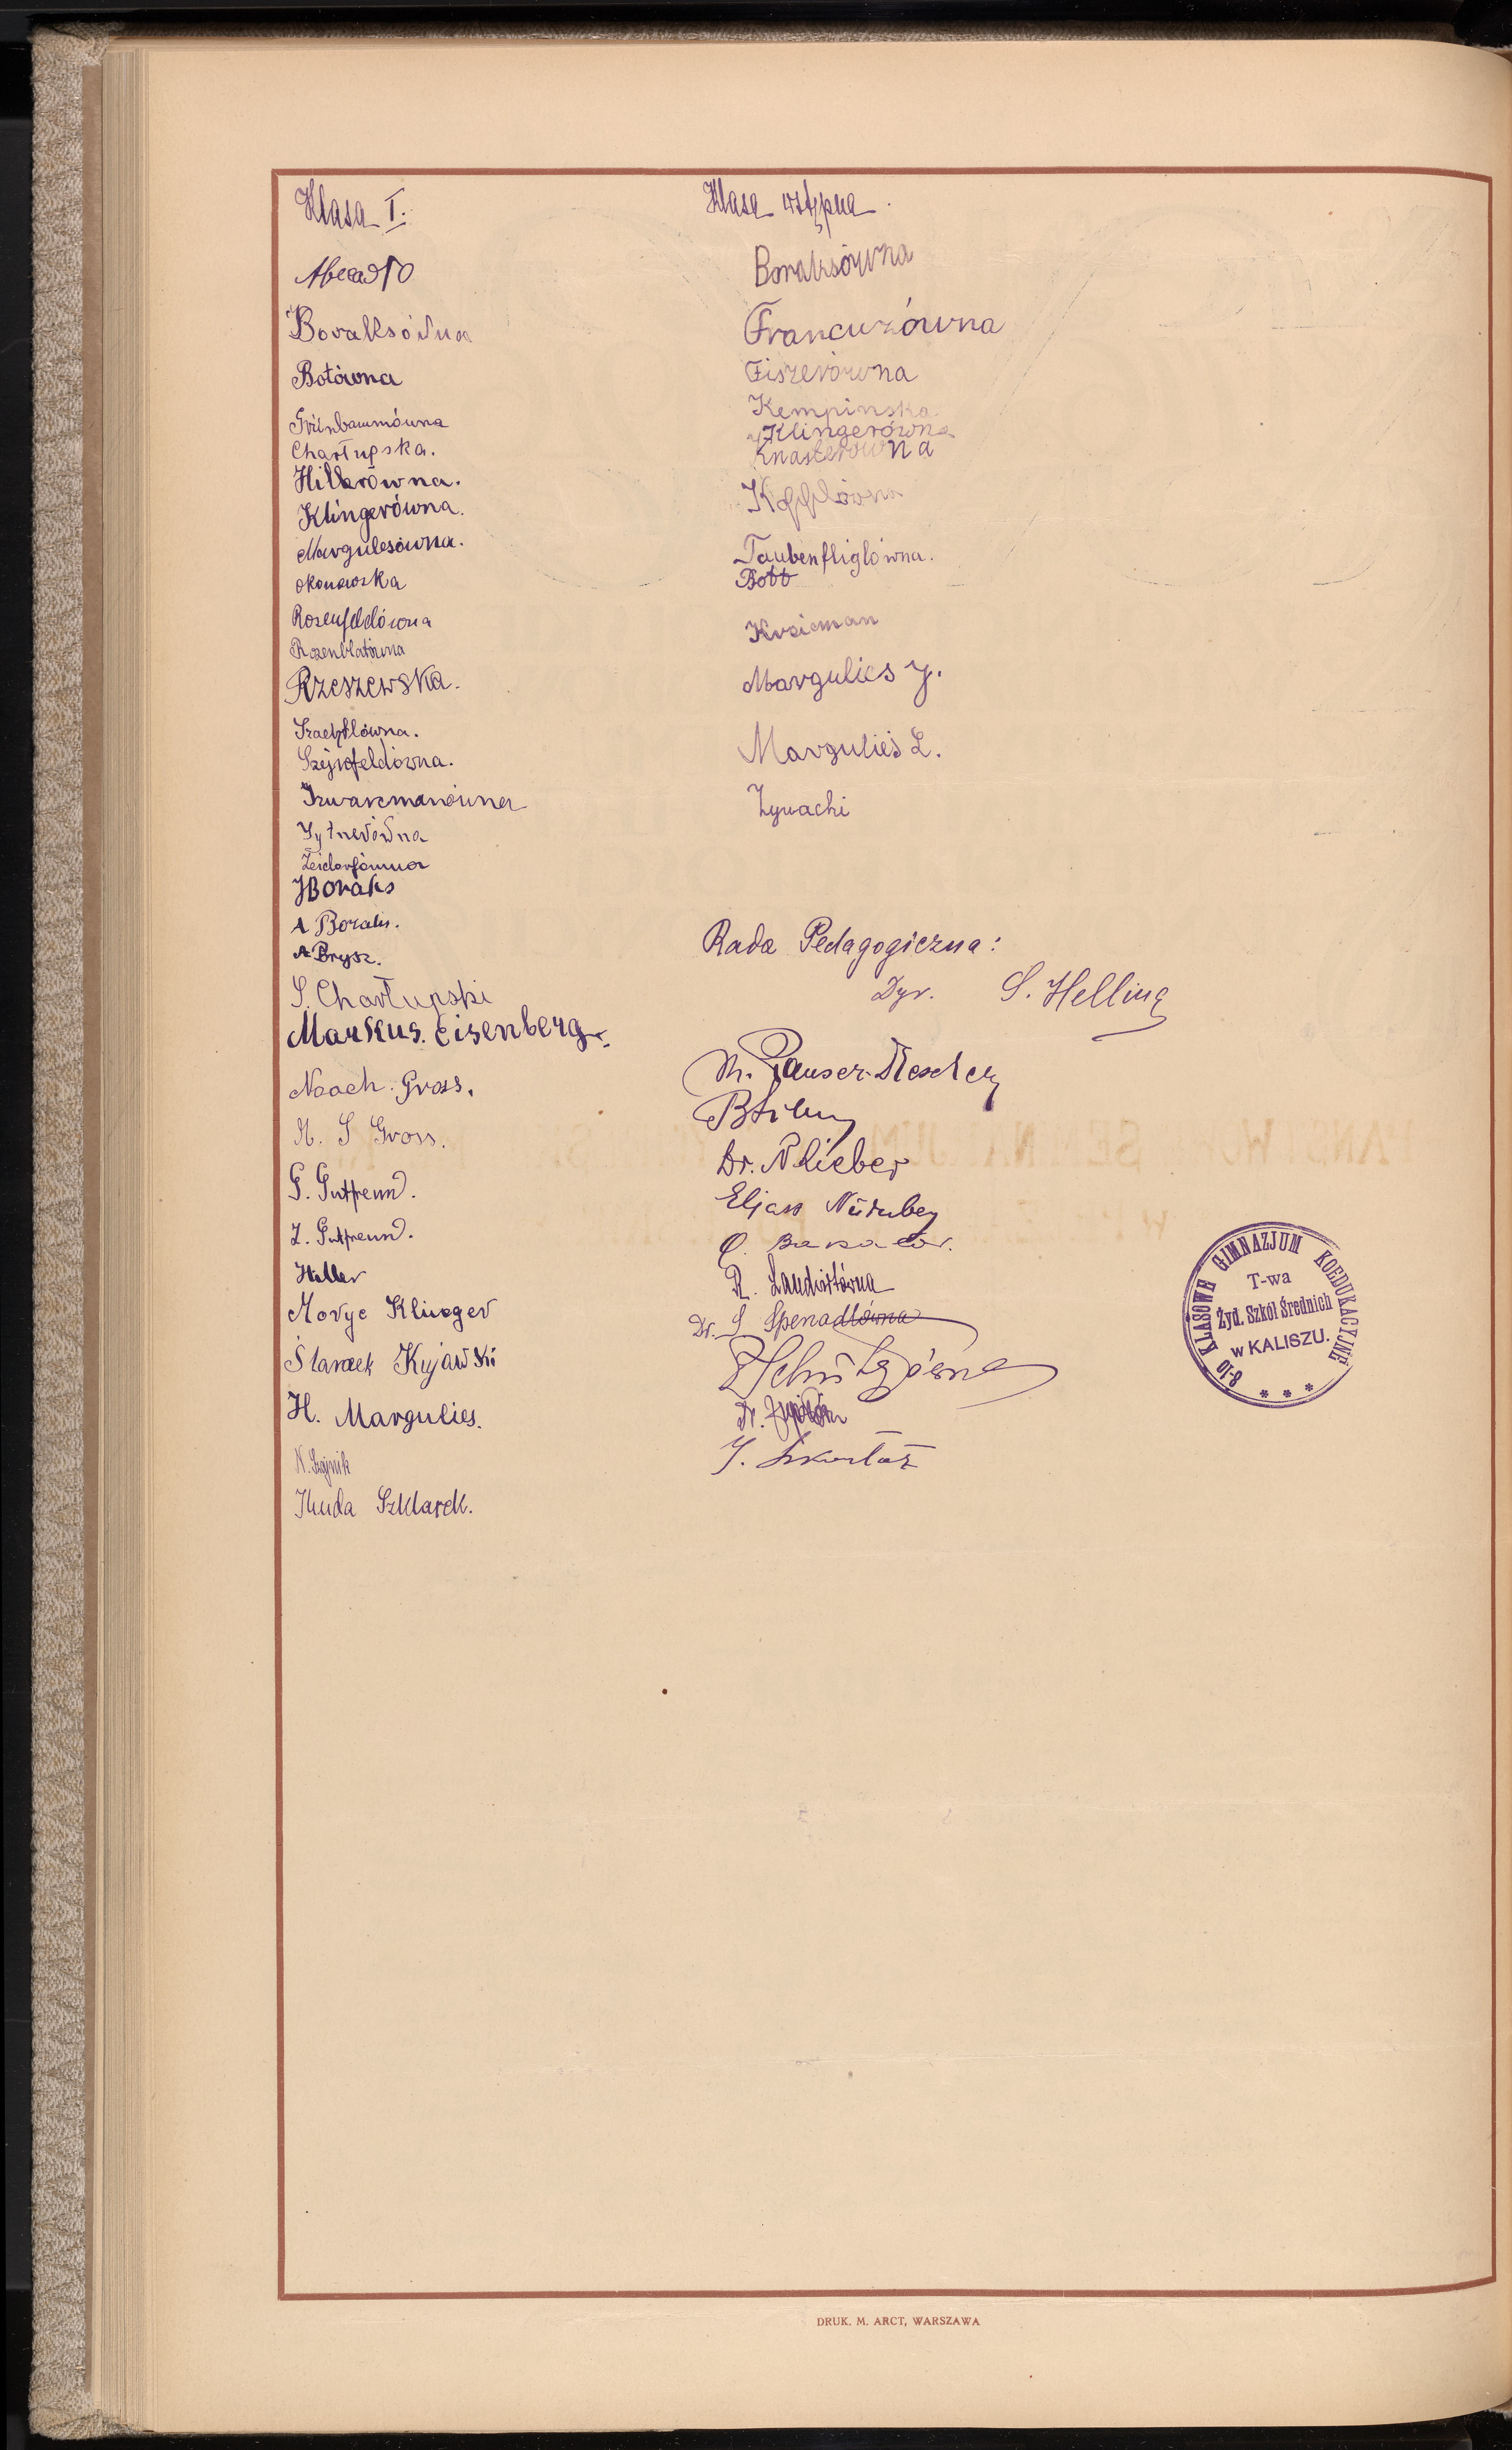 Klasa I.
Abecadło
Boraksówna
Botówna
Grünbaumówna
Chartupska.
Hillerówna.
Klingerówna.
Margulesówna.
Okonowska
Rosenfeldówna
Rozenblatówna
Rzeszewska.
Szejnfeldówna.
Szwarcmanówna
Żytnerówna
J Boraks
A Boraks.
A Brysz.
S. Chartupski
Markus. Eisenberg.
Noach. Gross.
M. S Gross.
G. Gutfreund.
Z. Gutfreund.
Heller
Morye Klinger
Sławek Kujawski
H. Margulies.
N. Szajnik
Juda Szklarek.
Klasa wstępna.
Boraksówna
Francuzówna
Fiszerówna
Kempinska
Klingerówna
Knasterówna
Taubenfliglówna.
Bott
Kraicman
Margulies J.
Margulies L.
Żywachi
Rada Pedagogiczna:
Dyr. S. Helling
Dr. N Lieber
Eljasz Nürnberg
R. Landsztówna
Dr. S Spenadlówna
8-10 KLASOWE GIMNAZJUM KOEDUKACYJNE
T-wa
Żyd. Szkół Średnich
w KALISZU.
* * *
DRUK. M. ARCT, WARSZAWA